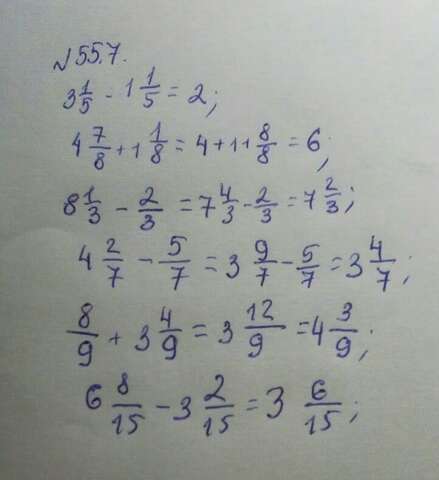 №557.
3 1/5 - 1 1/5 = 2;
4 7/8 + 1 1/8 = 4+1+ 8/8 = 6;
8 1/3 - 2/3 = 7 4/3 - 2/3 = 7 2/3;
4 2/7 - 5/7 = 3 9/7 - 5/7 = 3 4/7;
8/9 + 3 4/9 = 3 12/9 = 4 3/9;
6 8/15 - 3 2/15 = 3 6/15;